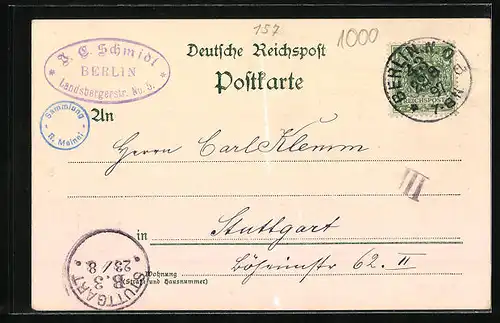 157
1000
J. C. Schmidt
BERLIN
* Landsbergerstr. No. 5. *
Deutsche Reichspost
Postkarte
BERLIN N.O.
7-8 N
REICHSPOST
Sammlung
R. Meinel
An
Herrn Carl Klemm
III
in
Stuttgart
62. II
Wohnung
(Straße und Hausnummer)
STUTTGART
B. 3.
23/8